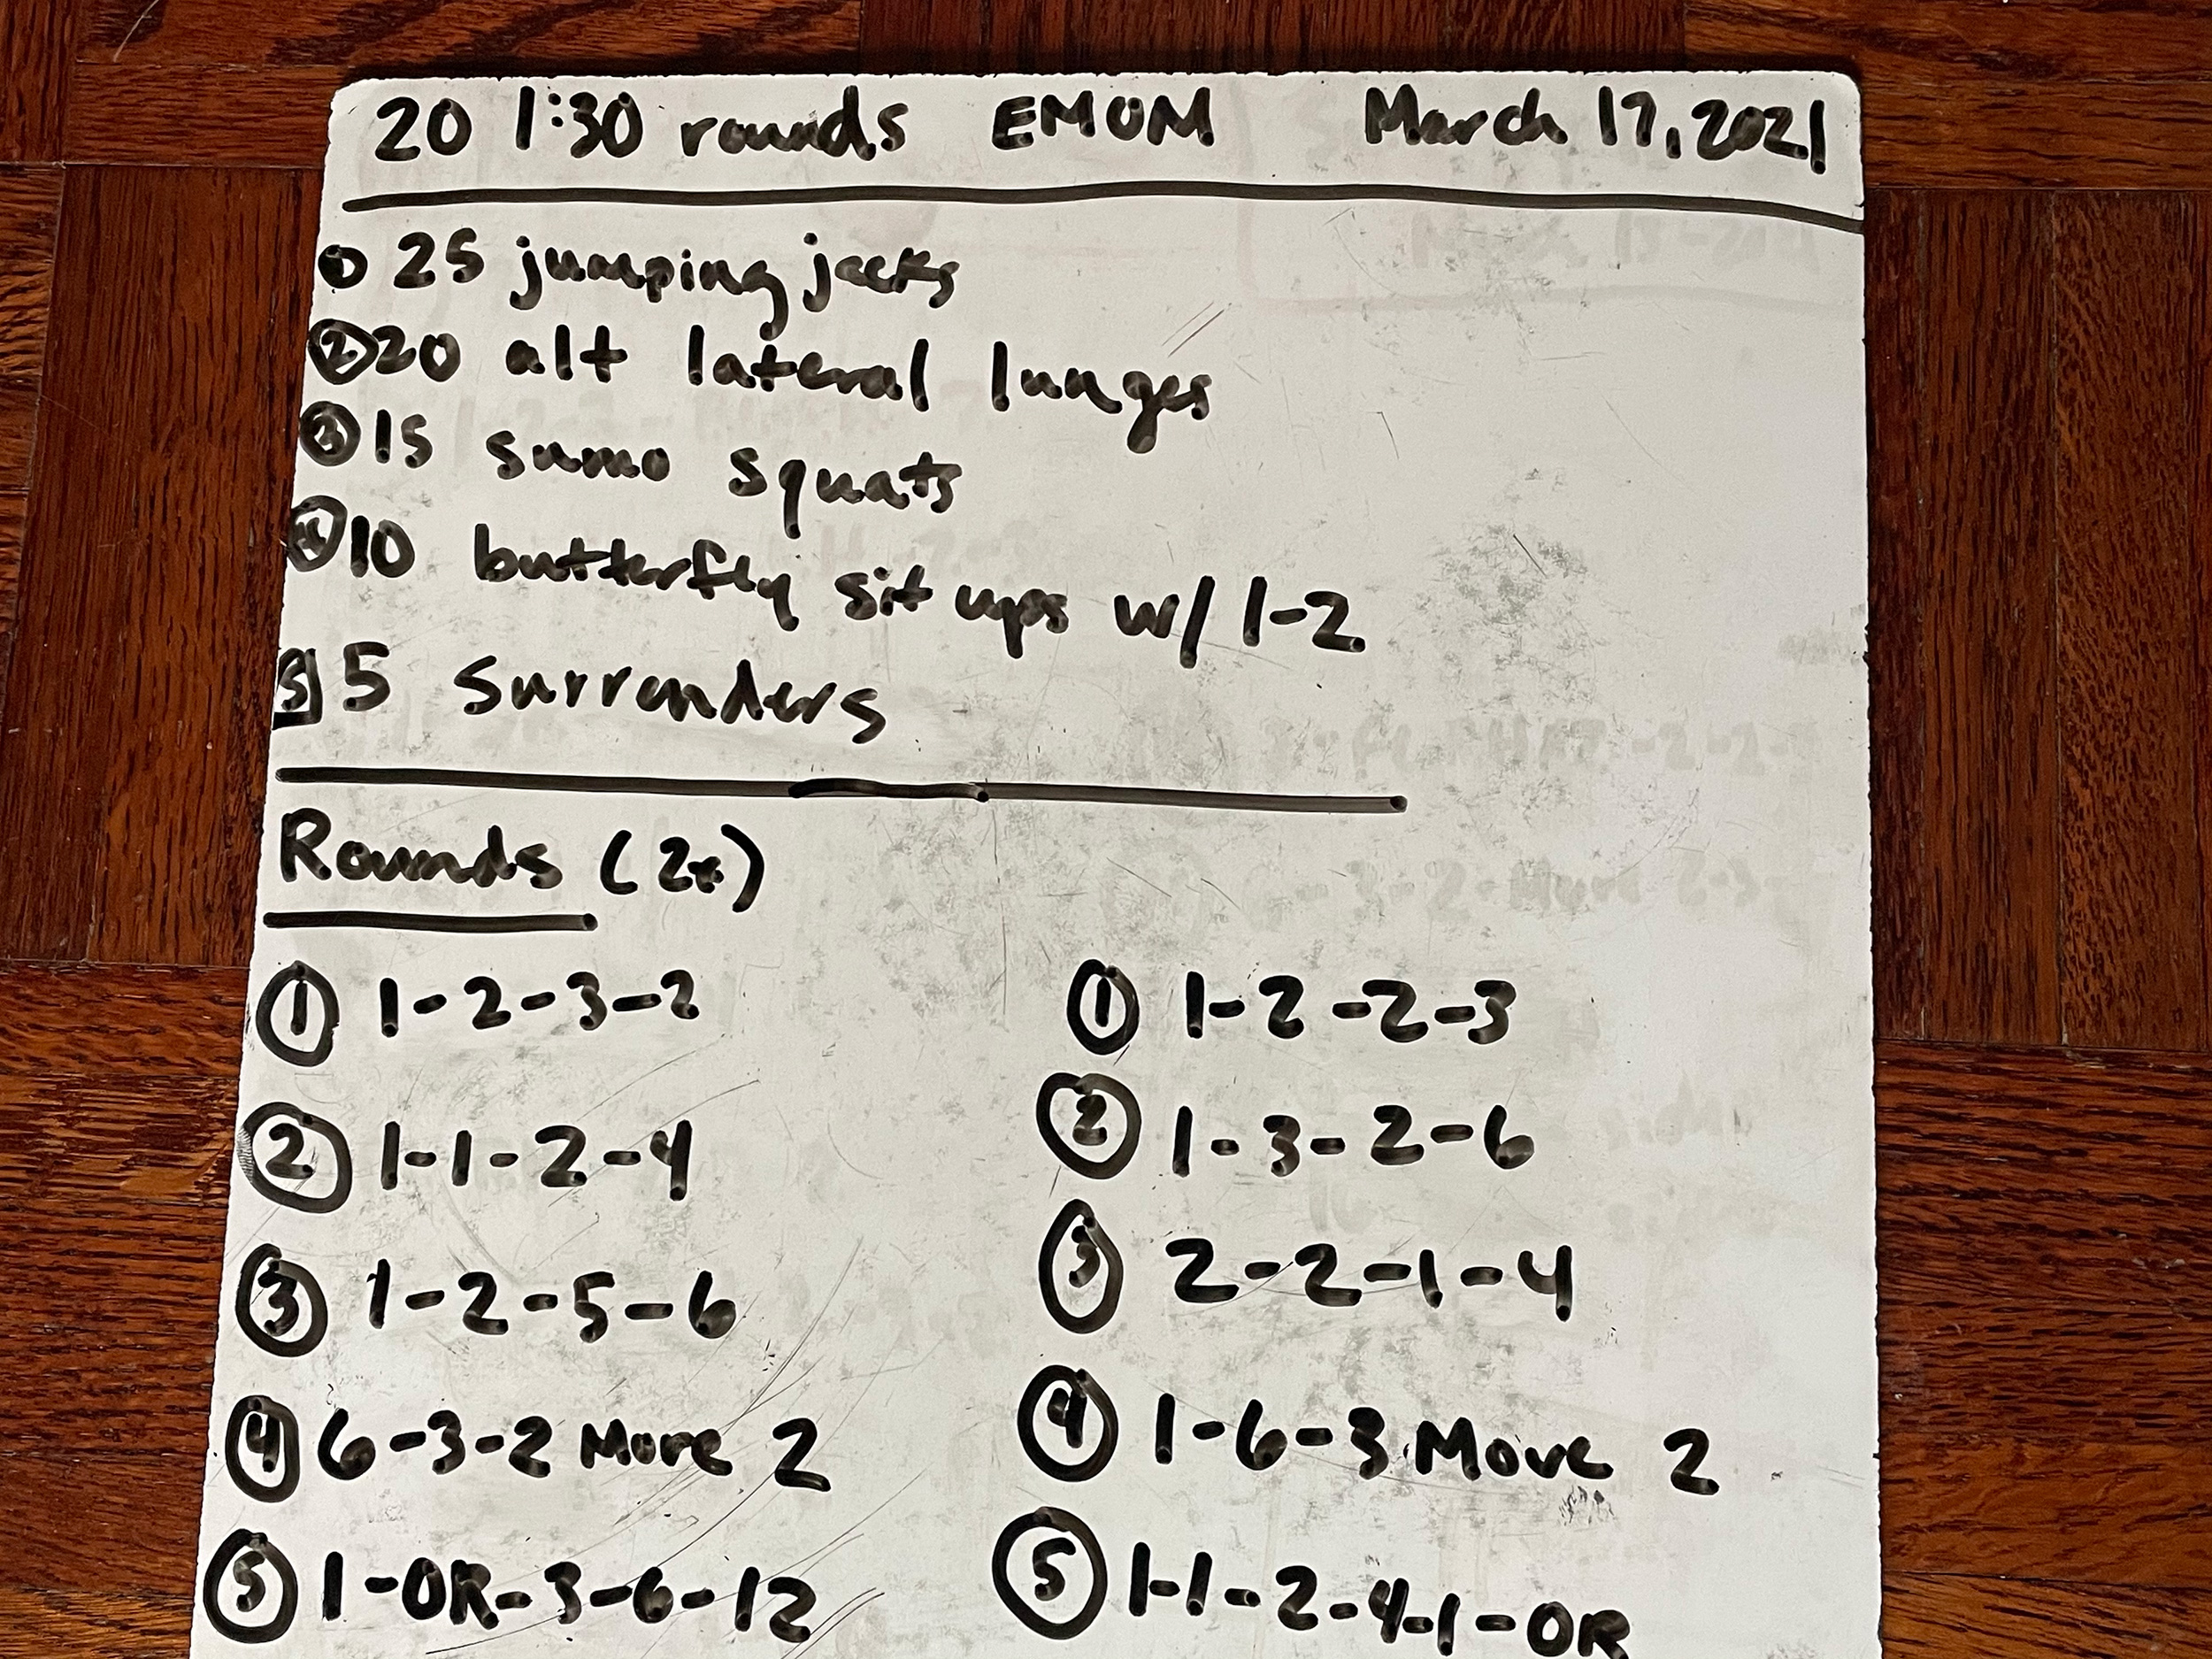 20 1:30 rounds EMOM March 17, 2021
① 25 jumping jacks
② 20 alt lateral lunges
③ 15 sumo squats
④ 10 butterfly sit ups w/ 1-2
5 5 surrenders
Rounds (2x)
① 1-2-3-2
② 1-1-2-4
③ 1-2-5-6
④ 6-3-2 Move 2
⑤ 1-OR-3-6-12
① 1-2-2-3
② 1-3-2-6
③ 2-2-1-4
④ 1-6-3 Move 2
⑤ 1-1-2-4-1-OR